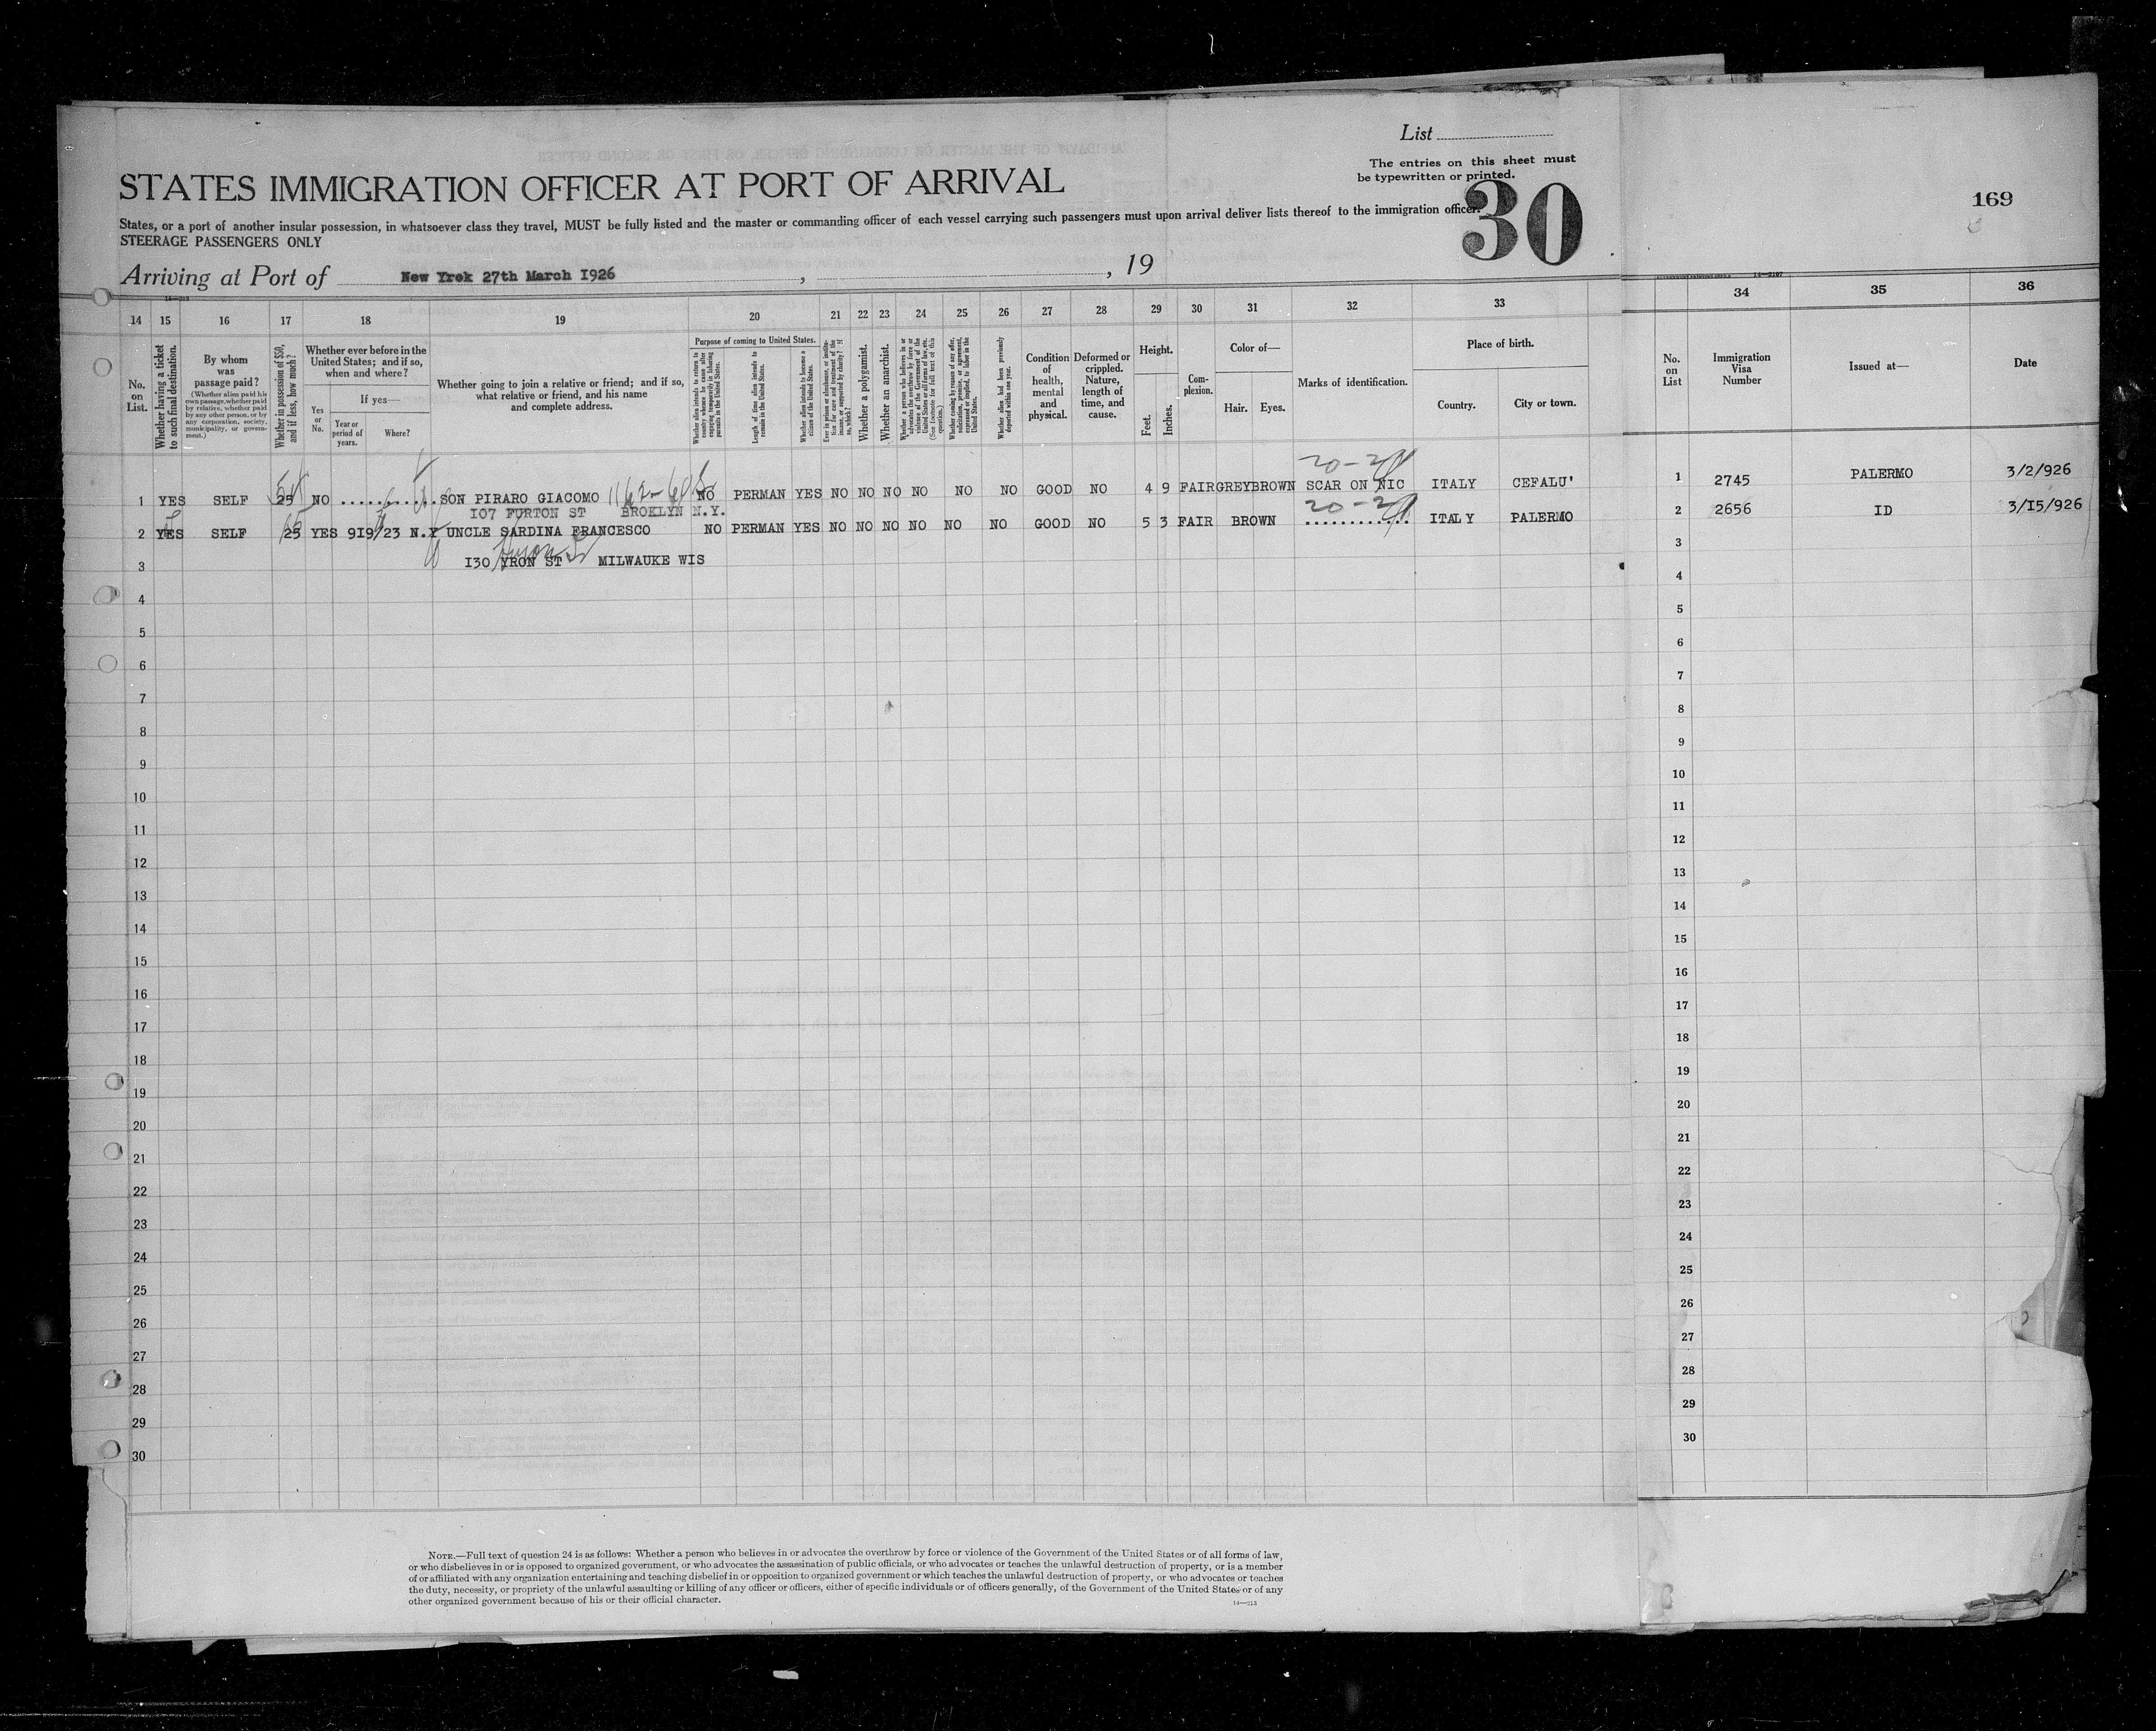 List
The entries on this sheet must
be typewritten or printed.
30
169
STATES IMMIGRATION OFFICER AT PORT OF ARRIVAL
States, or a port of another insular possession, in whatsoever class they travel, MUST be fully listed and the master or commanding officer of each vessel carrying such passengers must upon arrival deliver lists thereof to the immigration officer.
STEERAGE PASSENGERS ONLY
Arriving at Port of New Yrok 27th March I926 , , 19
14 15 16 17 18 19 20 21 22 23 24 25 26 27 28 29 30 31 32 33 34 35 36
No. on List.
Whether having a ticket to such final destination.
By whom was passage paid?
(Whether alien paid his own passage, whether paid by relative, whether paid by any other person, or by any corporation, society, municipality, or government.)
Whether in possession of $50, and if less, how much?
Whether ever before in the United States; and if so, when and where?
Yes or No.
If yes—
Year or period of years.
Where?
Whether going to join a relative or friend; and if so, what relative or friend, and his name and complete address.
Purpose of coming to United States.
Whether alien intends to return to country whence he came after engaging temporarily in laboring pursuits in the United States.
Length of time alien intends to remain in the United States.
Whether alien intends to become a citizen of the United States.
Whether a polygamist.
Whether an anarchist.
Whether alien had been previously deported within one year.
Condition of health, mental and physical.
Deformed or crippled. Nature, length of time, and cause.
Height.
Feet.
Inches.
Complexion.
Color of—
Hair.
Eyes.
Marks of identification.
Place of birth.
Country.
City or town.
No. on List
Immigration Visa Number
Issued at—
Date
20-2
1 YES SELF 25 NO SON PIRARO GIACOMO NO PERMAN YES NO NO NO NO NO NO GOOD NO 4 9 FAIR GREY BROWN SCAR ON NIC ITALY CEFALU' 1 2745 PALERMO 3/2/926
I07 FURTON ST BROKLYN N.Y.
20-2
2 YES SELF 25 YES 9I9/23 N.Y UNCLE SARDINA FRANCESCO NO PERMAN YES NO NO NO NO NO NO GOOD NO 5 3 FAIR BROWN ITALY PALERMO 2 2656 ID 3/I5/926
3 I30 YRON ST MILWAUKE WIS 3
4 4
5 5
6 6
7 7
8 8
9 9
10 10
11 11
12 12
13 13
14 14
15 15
16 16
17 17
18 18
19 19
20 20
21 21
22 22
23 23
24 24
25 25
26 26
27 27
28 28
29 29
30 30
NOTE.—Full text of question 24 is as follows: Whether a person who believes in or advocates the overthrow by force or violence of the Government of the United States or of all forms of law,
or who disbelieves in or is opposed to organized government, or who advocates the assassination of public officials, or who advocates or teaches the unlawful destruction of property, or is a member
of or affiliated with any organization entertaining and teaching disbelief in or opposition to organized government or which teaches the unlawful destruction of property, or who advocates or teaches
the duty, necessity, or propriety of the unlawful assaulting or killing of any officer or officers, either of specific individuals or of officers generally, of the Government of the United States or of any
other organized government because of his or their official character.
14—213